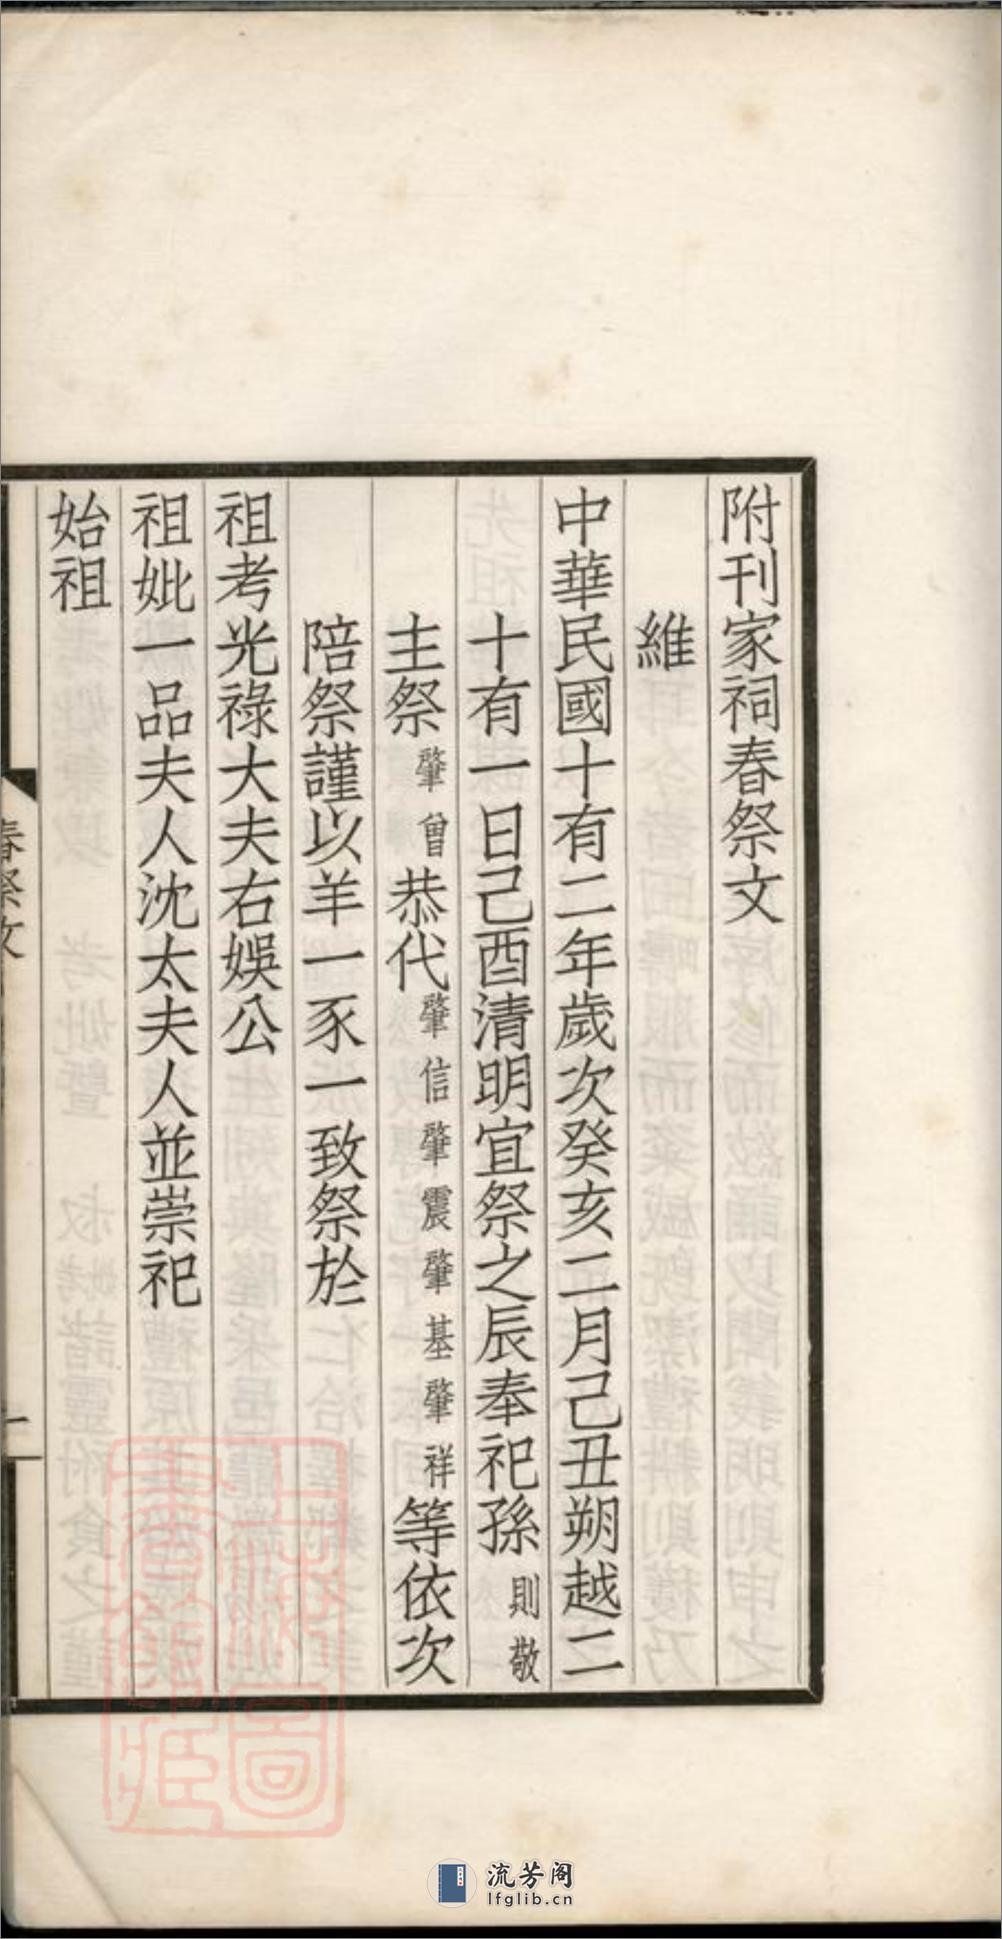 附刊家祠春祭文
維
中華民國十有二年歲次癸亥二月己丑朔越二
十有一日己酉清明宜祭之辰奉祀孫則敬
主祭肇曾恭代肇信肇震肇基肇祥等依次
陪祭謹以羊一豕一致祭於
祖考光祿大夫右娛公
祖妣一品夫人沈太夫人並崇祀
始祖
春祭文
一
流芳阁
lfglib.cn